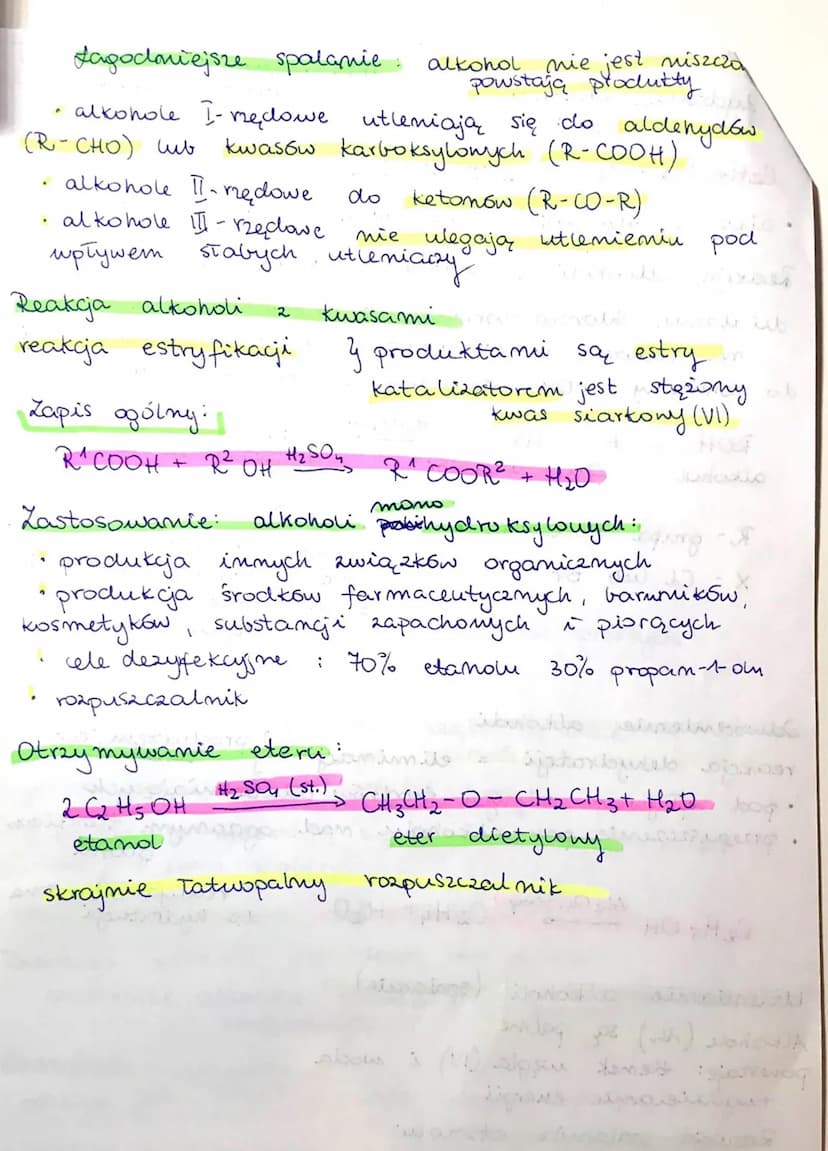 Łagodniejsze spalanie: alkohol nie jest niszczo
powstają produkty
• alkohole I-rzędowe utleniają się do aldehydów
(R-CHO) lub kwasów karboksylowych (R-COOH)
• alkohole II-rzędowe do ketonów (R-CO-R)
• alkohole III-rzędowe nie ulegają utlenieniu pod
wpływem słabych utleniaczy
Reakcja alkoholi z kwasami
reakcja estryfikacji } produktami są estry
katalizatorem jest stężony
kwas siarkowy (VI)
Zapis ogólny:
R¹COOH + R²OH H₂SO₄→ R¹COOR² + H₂O
mono
Zastosowanie: alkoholi hydroksylowych:
• produkcja innych związków organicznych
• produkcja środków farmaceutycznych, barwników,
kosmetyków, substancji zapachowych i piorących
• cele dezyfekcyjne : 70% etanolu 30% propan-1-olu
• rozpuszczalnik
Otrzymywanie eteru:
2 C₂H₅OH H₂SO₄ (st.)→ CH₃CH₂-O-CH₂CH₃ + H₂O
etanol eter dietylowy
skrajnie łatwopalny rozpuszczalnik